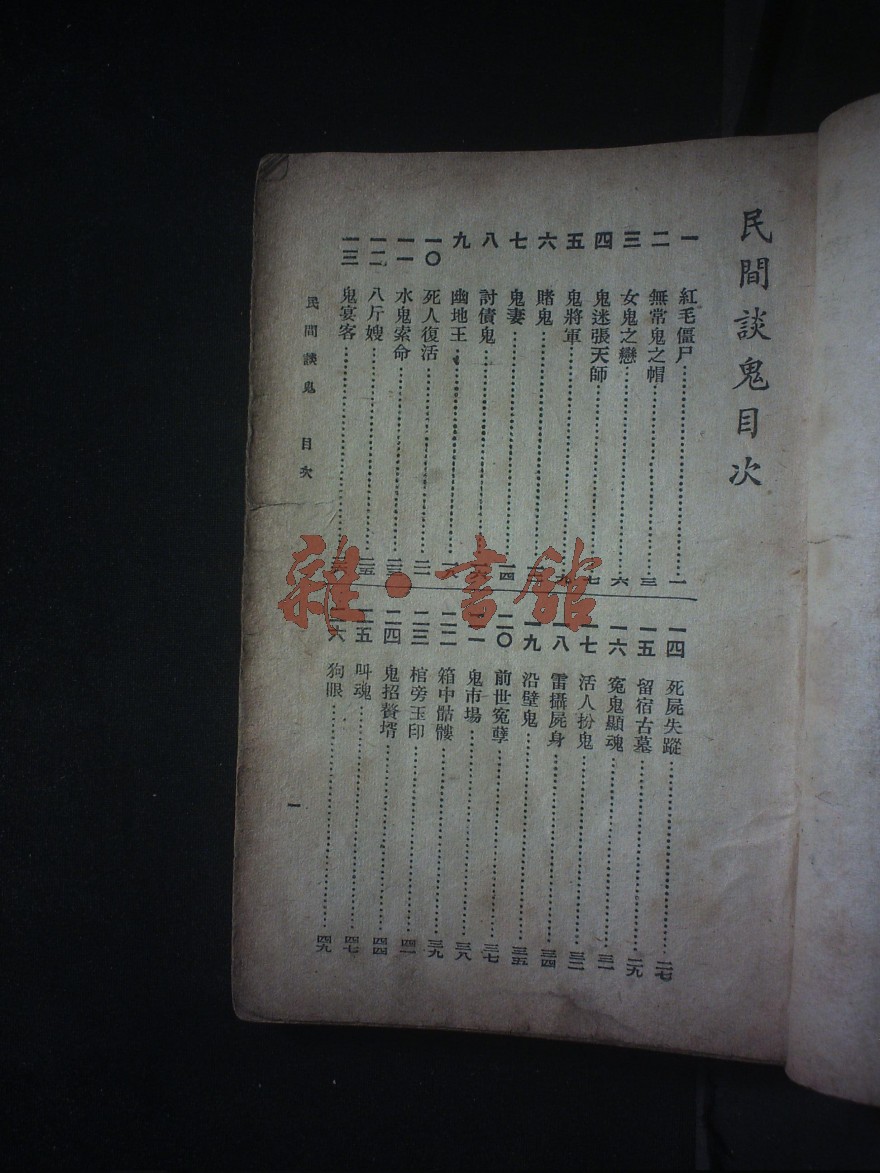 民間談鬼目次
一 紅毛僵尸 一
二 無常鬼之帽 三
三 女鬼之戀 六
四 鬼迷張天師 七
五 鬼將軍 九
六 賭鬼
七 鬼妻 一四
八 討債鬼
九 幽地王
一〇 死人復活 二一
一一 水鬼索命 二三
一二 八斤嫂 二五
一三 鬼宴客 二六
一四 死屍失蹤 二七
一五 留宿古墓 二九
一六 冤鬼顯魂 三一
一七 活人扮鬼 三二
一八 雷攝屍身 三四
一九 沿壁鬼 三五
二〇 前世冤孽 三七
二一 鬼市場 三八
二二 箱中骷髏 三九
二三 棺旁玉印 四一
二四 鬼招贅壻 四四
二五 叫魂 四七
二六 狗眼 四九
民間談鬼 目次
一
雜·書館